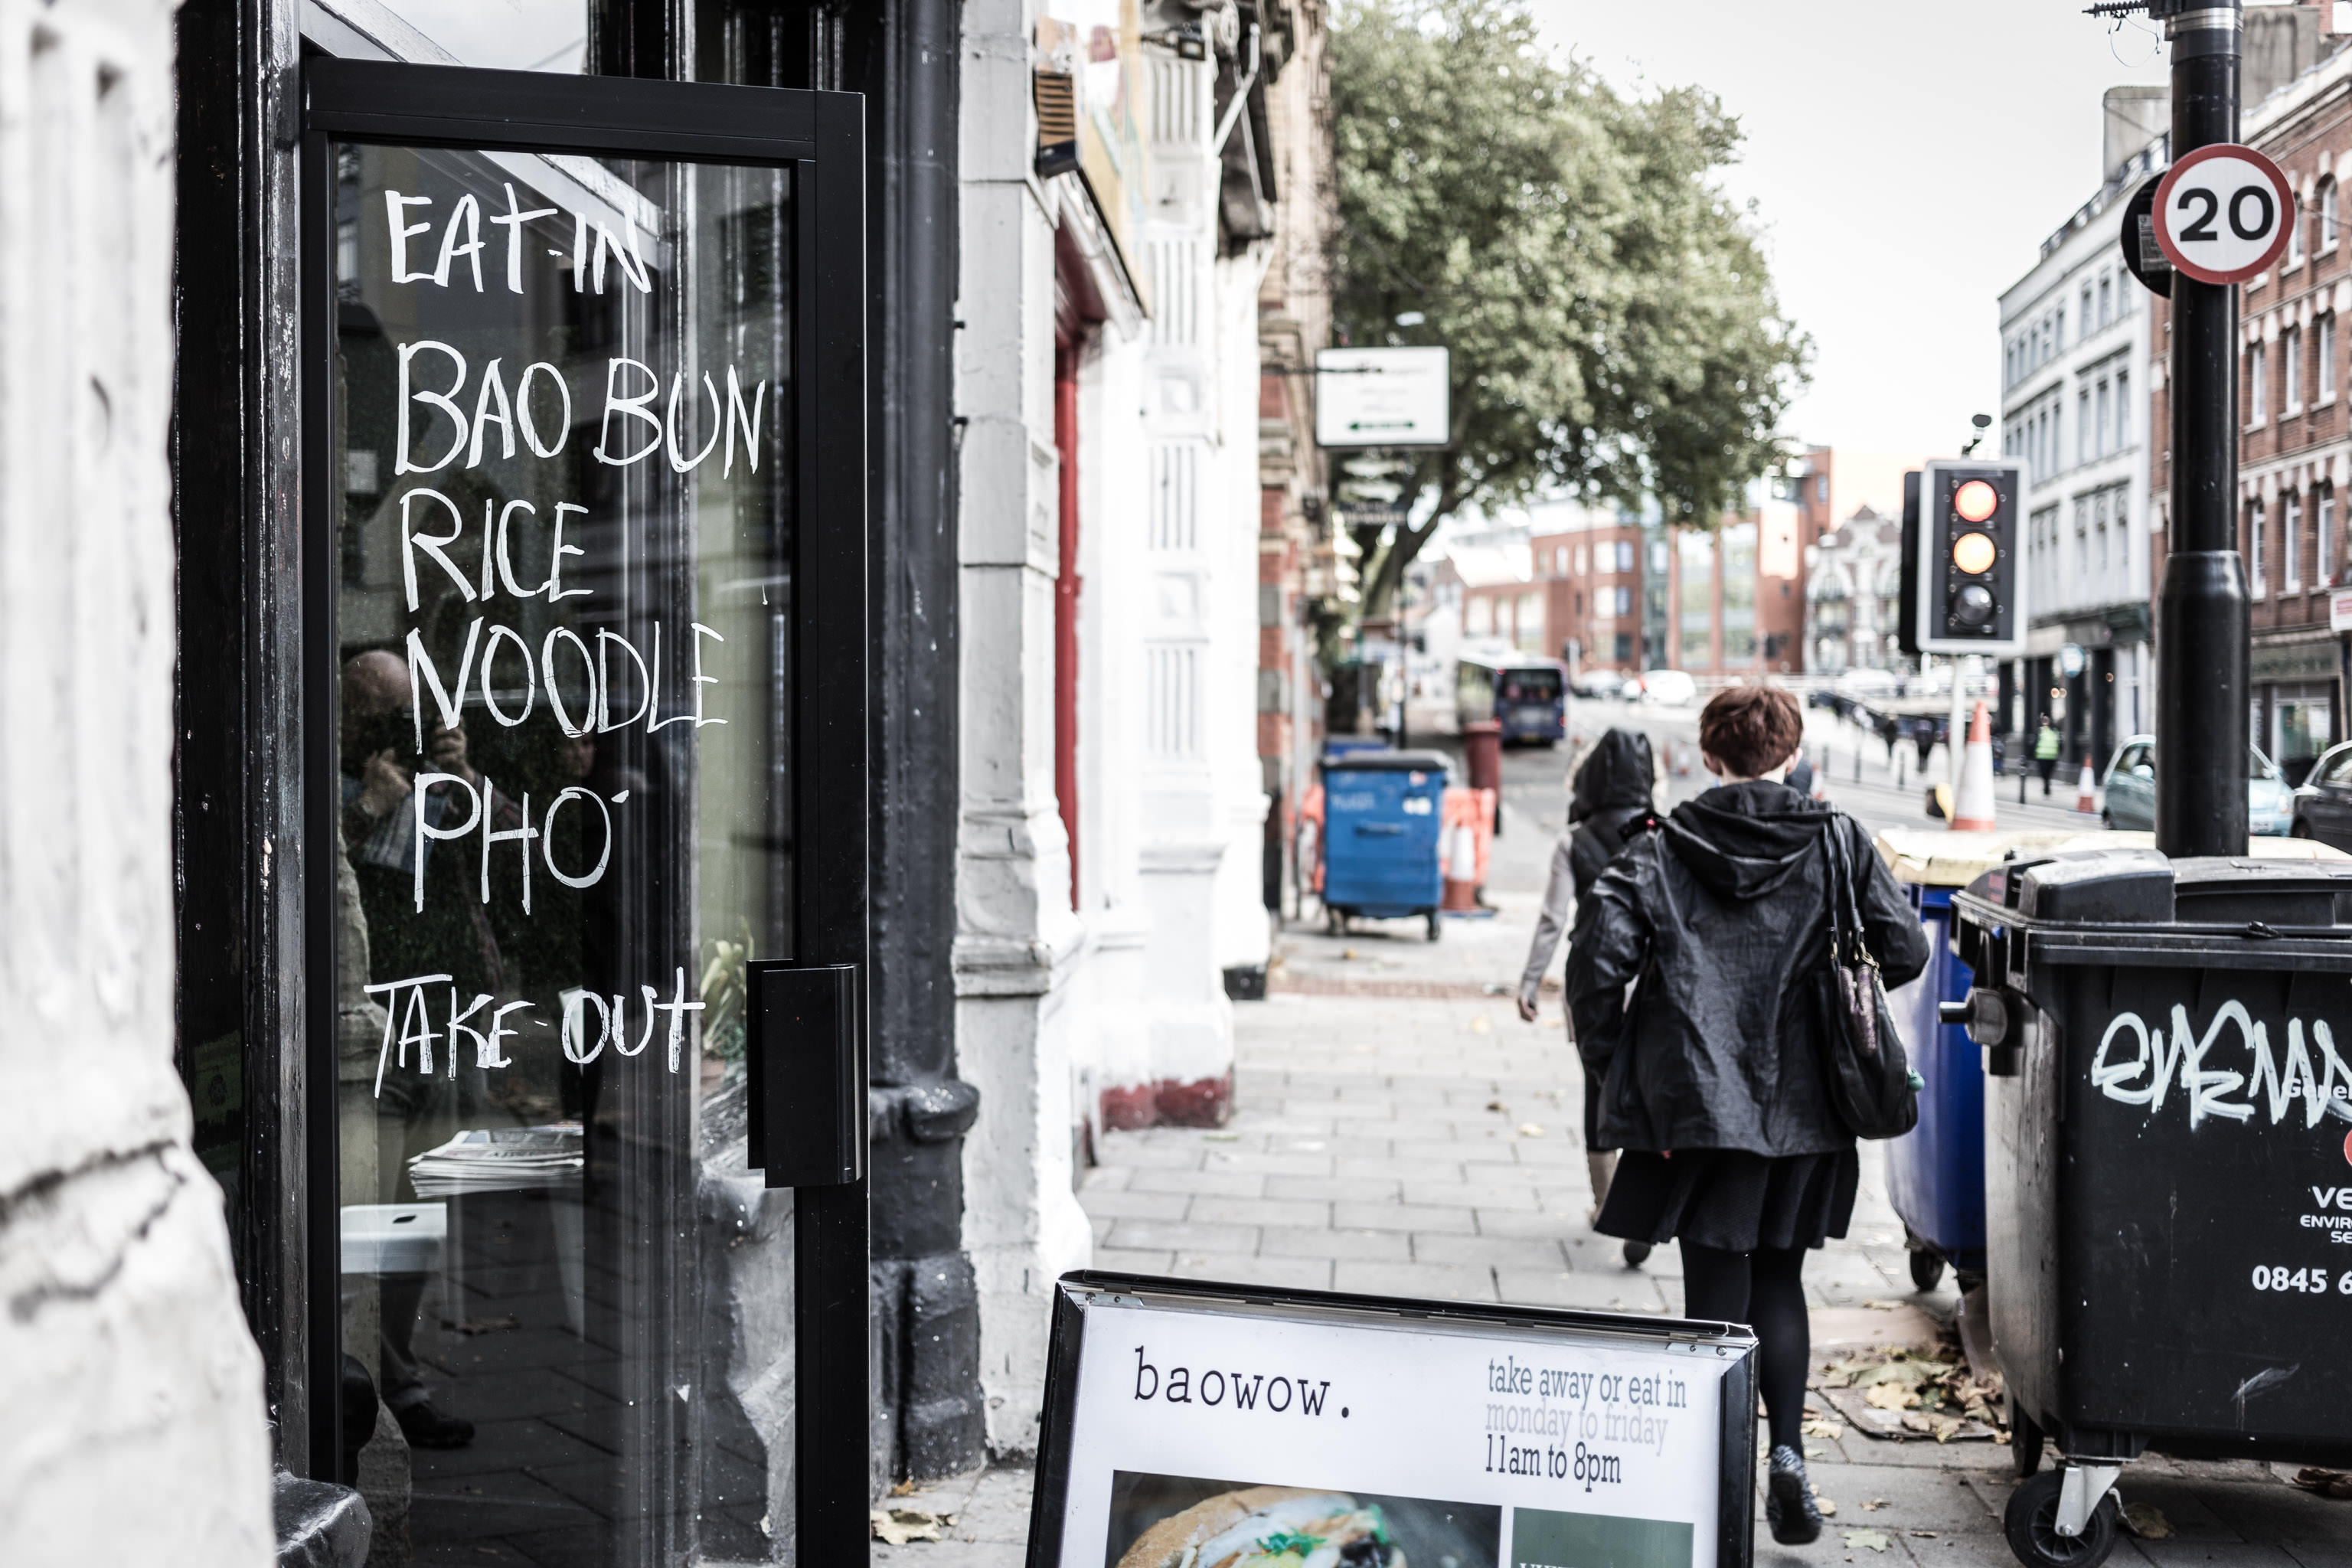 EAT-IN
BAO BUN
RICE
NOODLE
PHO
TAKE-OUT
20
baowow.
take away or eat in
monday to friday
11am to 8pm
0845 6